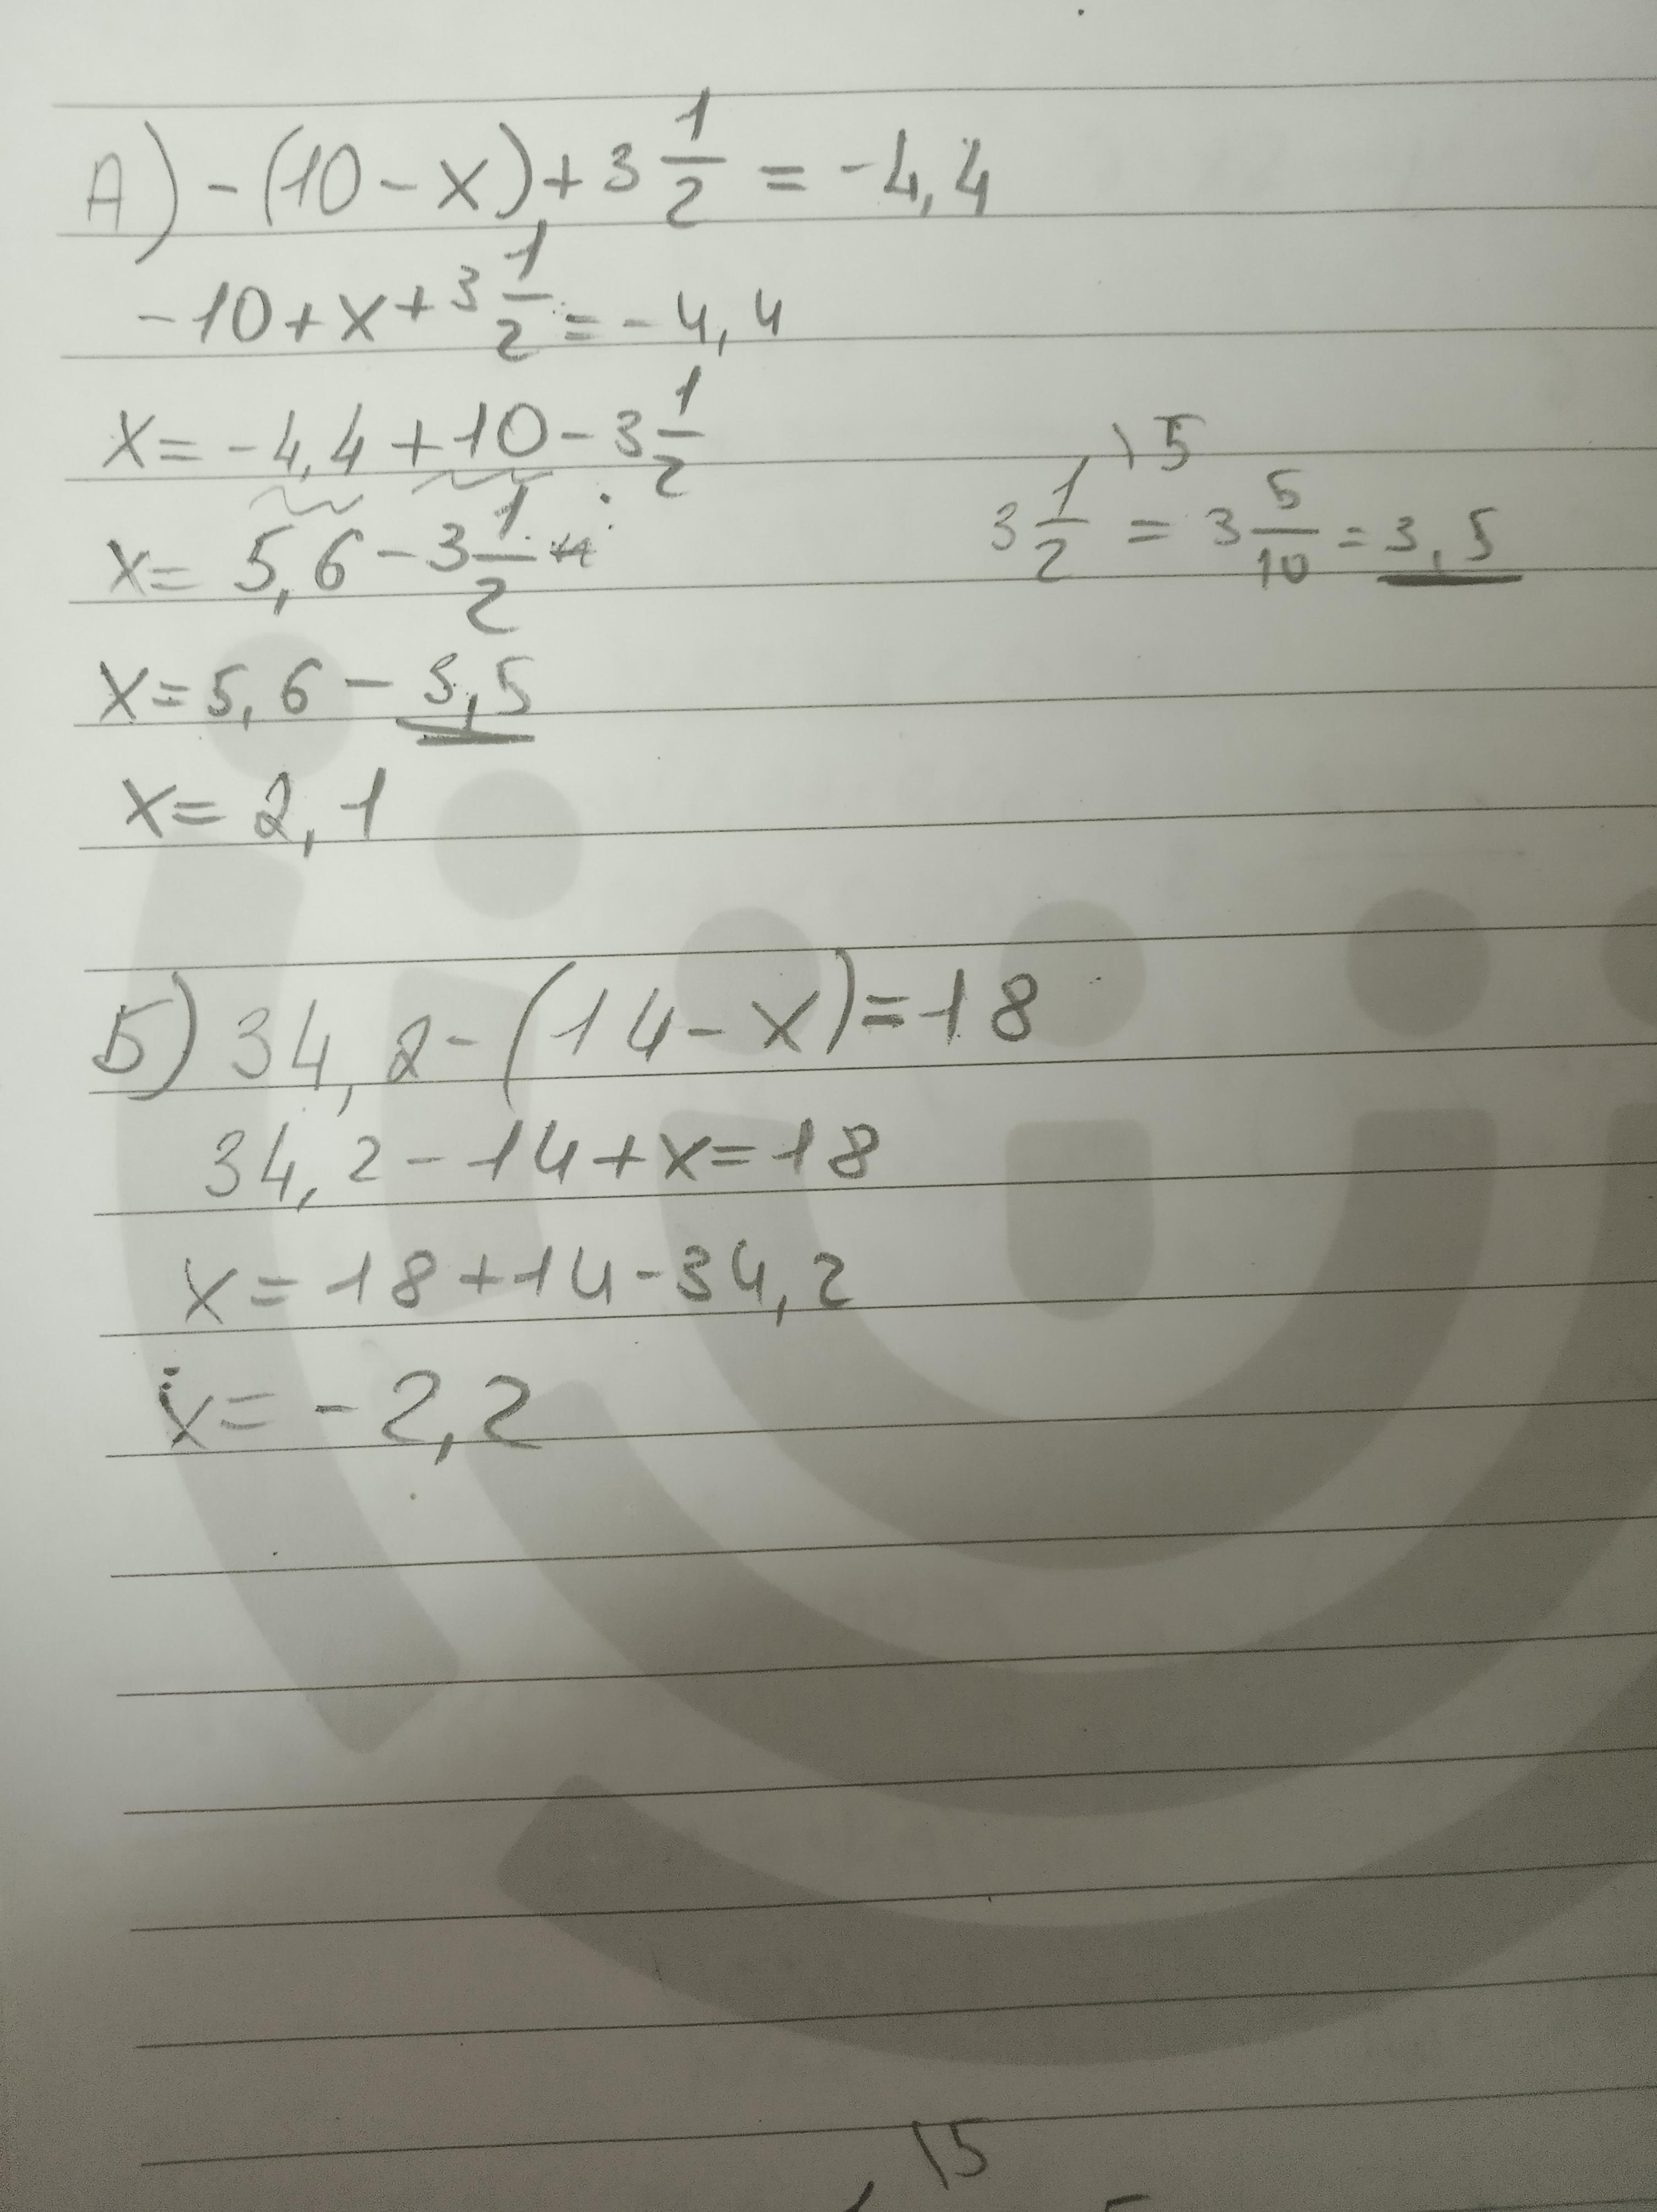 А) -(10-x)+3 1/2 = -4,4
-10+x+3 1/2 = -4,4
x= -4,4+10-3 1/2
x= 5,6-3 1/2
\5
3 1/2 = 3 5/10 = 3,5
x=5,6-3,5
x=2,1
Б) 34,2-(14-x)=18
34,2-14+x=18
x=18+14-34,2
x=-2,2
\5